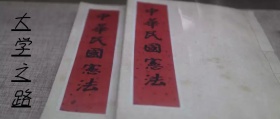 大学之路
中華民國憲法
中華民國憲法